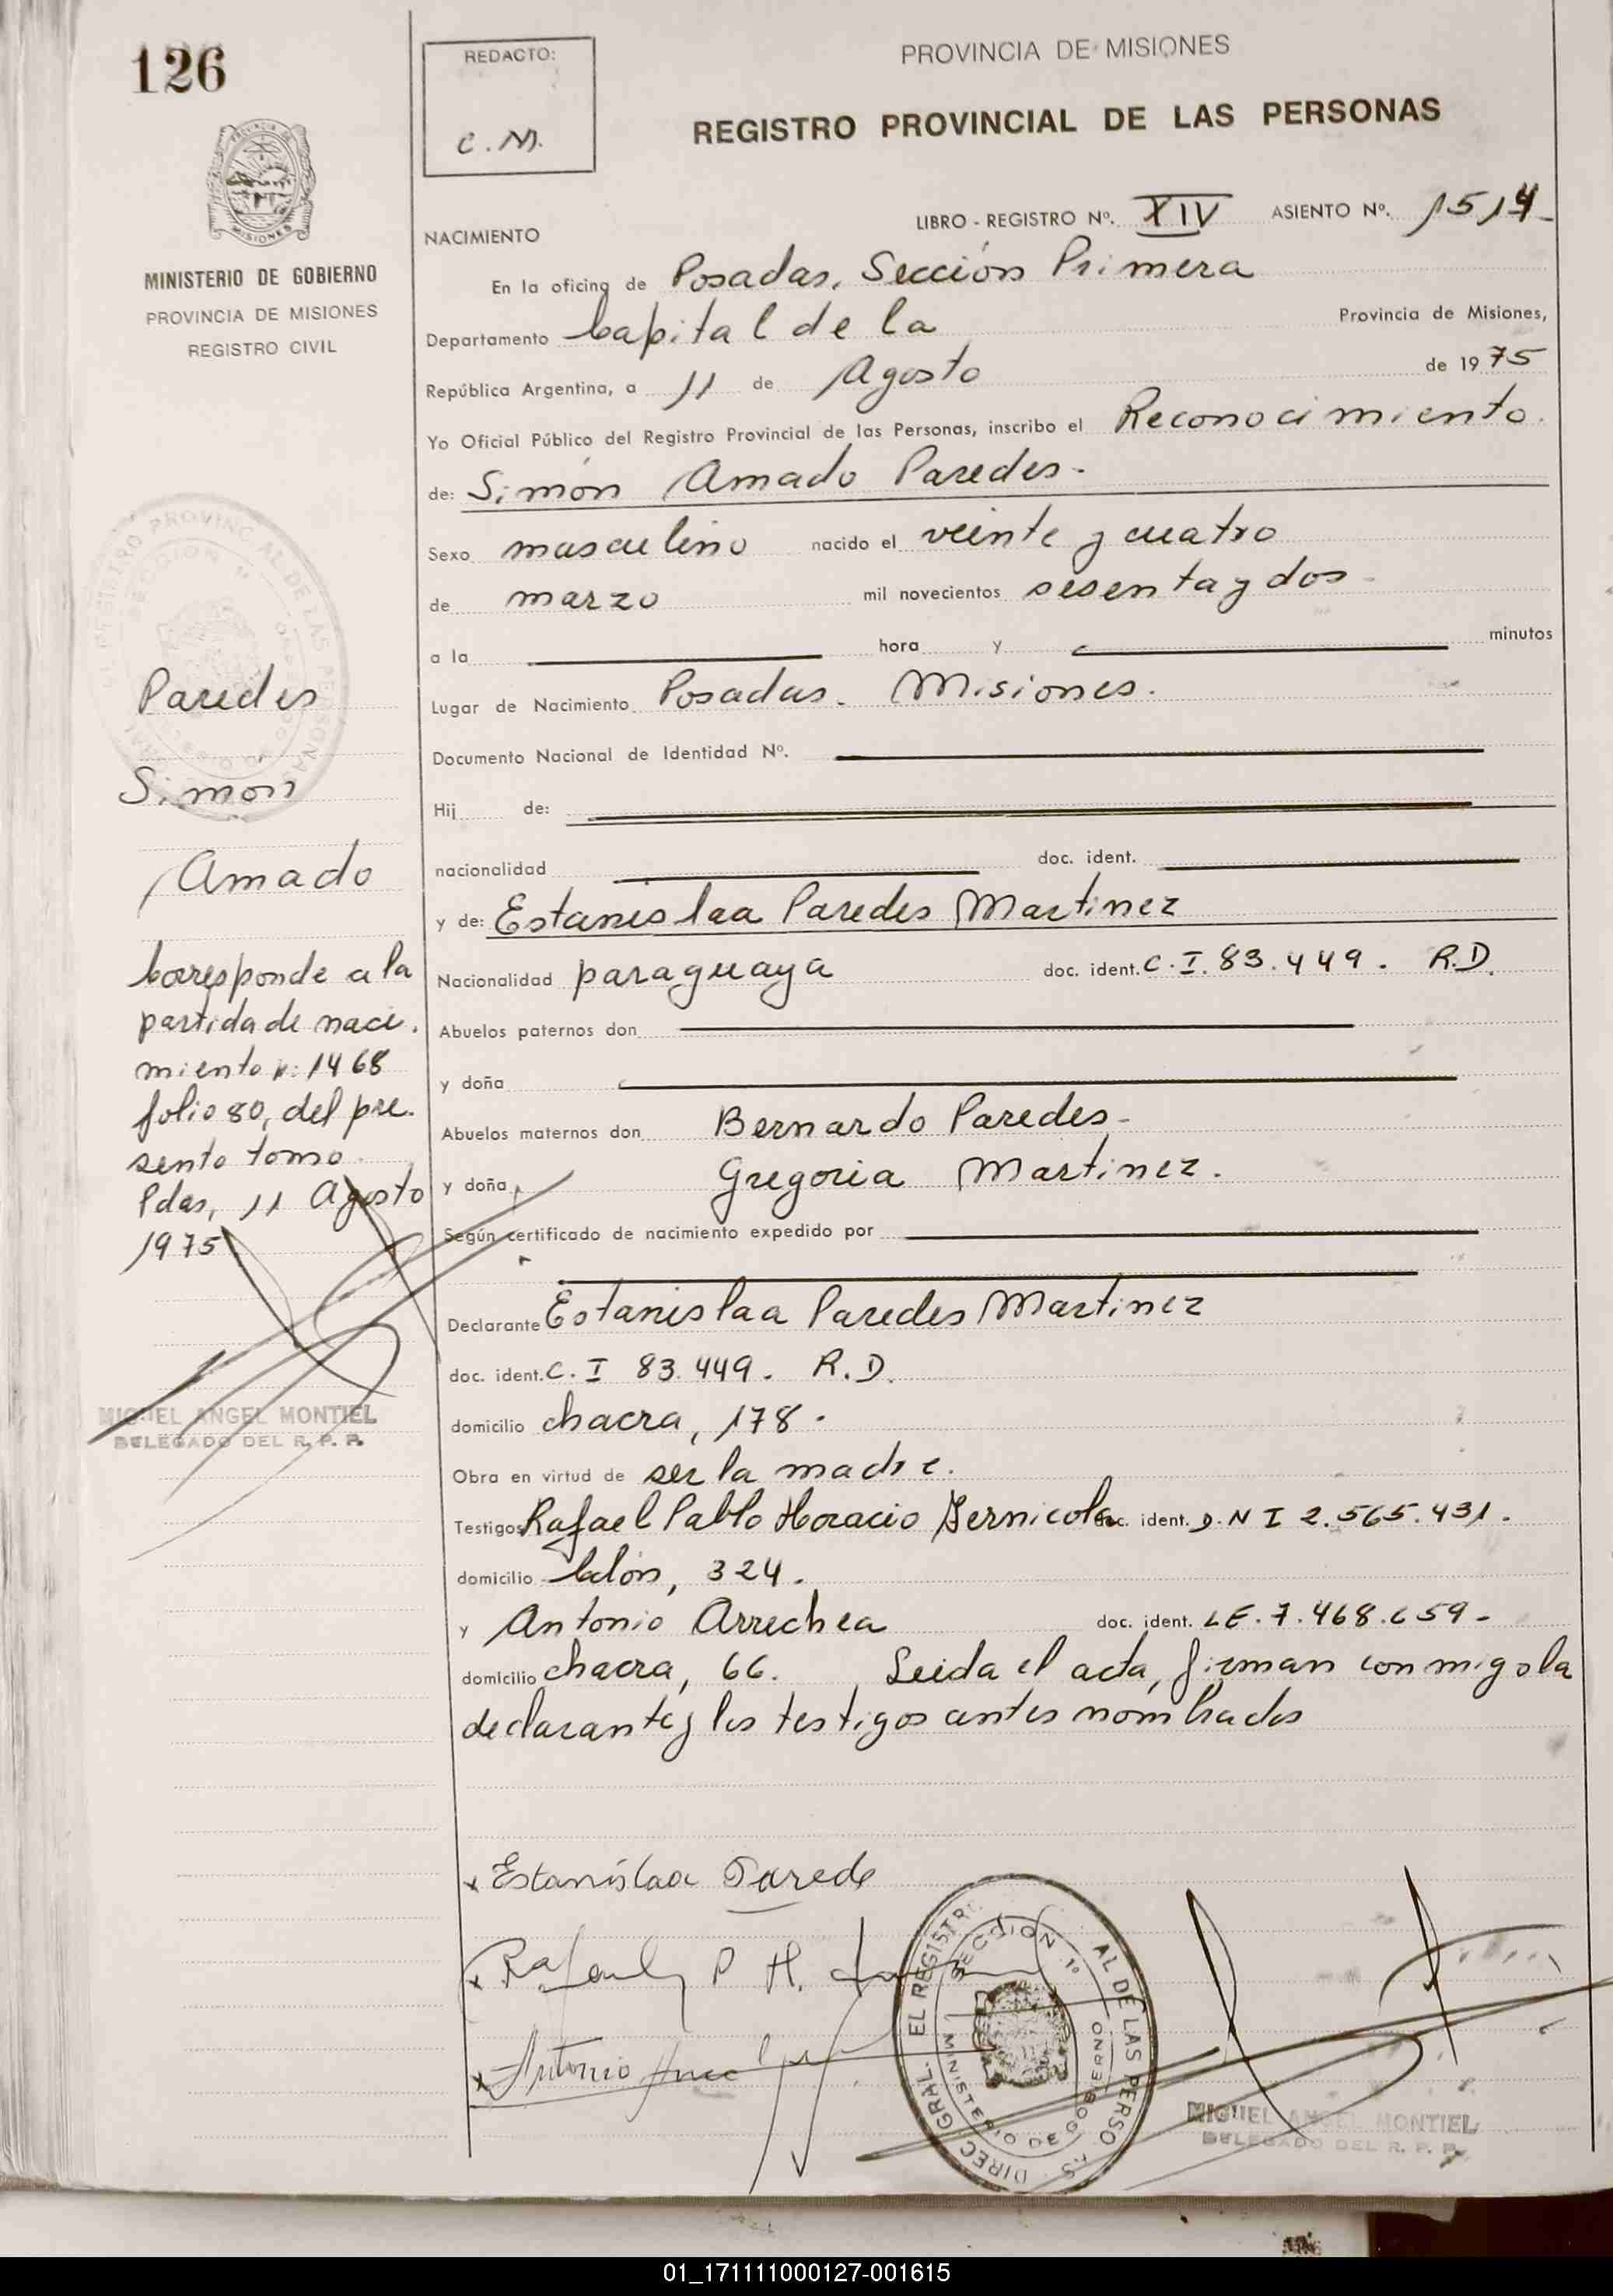 126
MISIONES
MINISTERIO DE GOBIERNO
PROVINCIA DE MISIONES
REGISTRO CIVIL
Paredes
Simón
Amado
Corresponde a la
partida de naci.
miento n: 1468
folio 80, del pre.
sente tomo.
Pdas, 11 Agosto
1975
MIGUEL ANGEL MONTIEL
DELEGADO DEL R. P. P.
REDACTO:
C. M.
PROVINCIA DE MISIONES
REGISTRO PROVINCIAL DE LAS PERSONAS
LIBRO - REGISTRO Nº. XIV ASIENTO Nº. 1514
NACIMIENTO
En la oficina de Posadas, Sección Primera
Departamento Capital de la Provincia de Misiones,
República Argentina, a 11 de Agosto de 1975
Yo Oficial Público del Registro Provincial de las Personas, inscribo el Reconocimiento.
de: Simón Amado Paredes-
Sexo masculino nacido el veinte y cuatro
de marzo mil novecientos sesenta y dos-
a la hora y minutos
Lugar de Nacimiento Posadas. Misiones.
Documento Nacional de Identidad Nº.
Hij de:
nacionalidad doc. ident.
y de: Estanislaa Paredes Martinez
Nacionalidad paraguaya doc. ident. C.I. 83.449. R.D.
Abuelos paternos don
y doña
Abuelos maternos don Bernardo Paredes-
y doña Gregoria Martinez.
Según certificado de nacimiento expedido por
Declarante Estanislaa Paredes Martinez
doc. ident. C. I 83.449. R.D.
domicilio chacra, 178.
Obra en virtud de ser la madre.
Testigos Rafael Pablo Horacio doc. ident. D.N I 2.565.431.
domicilio Colón, 324.
y Antonio Arrechea doc. ident. LE. 7.468.659-
domicilio chacra, 66. Leida el acta, firman conmigo la
declarante y los testigos antes nombrados
x Estanislaa Parede
x Rafael P H.
x Antonio
DIREC GRAL. EL REGISTR AL DE LAS PERSO AS
SECCION 1º
MINISTERIO DE GOBIERNO
MIGUEL ANGEL MONTIEL
DELEGADO DEL R. P. P.
01_171111000127-001615